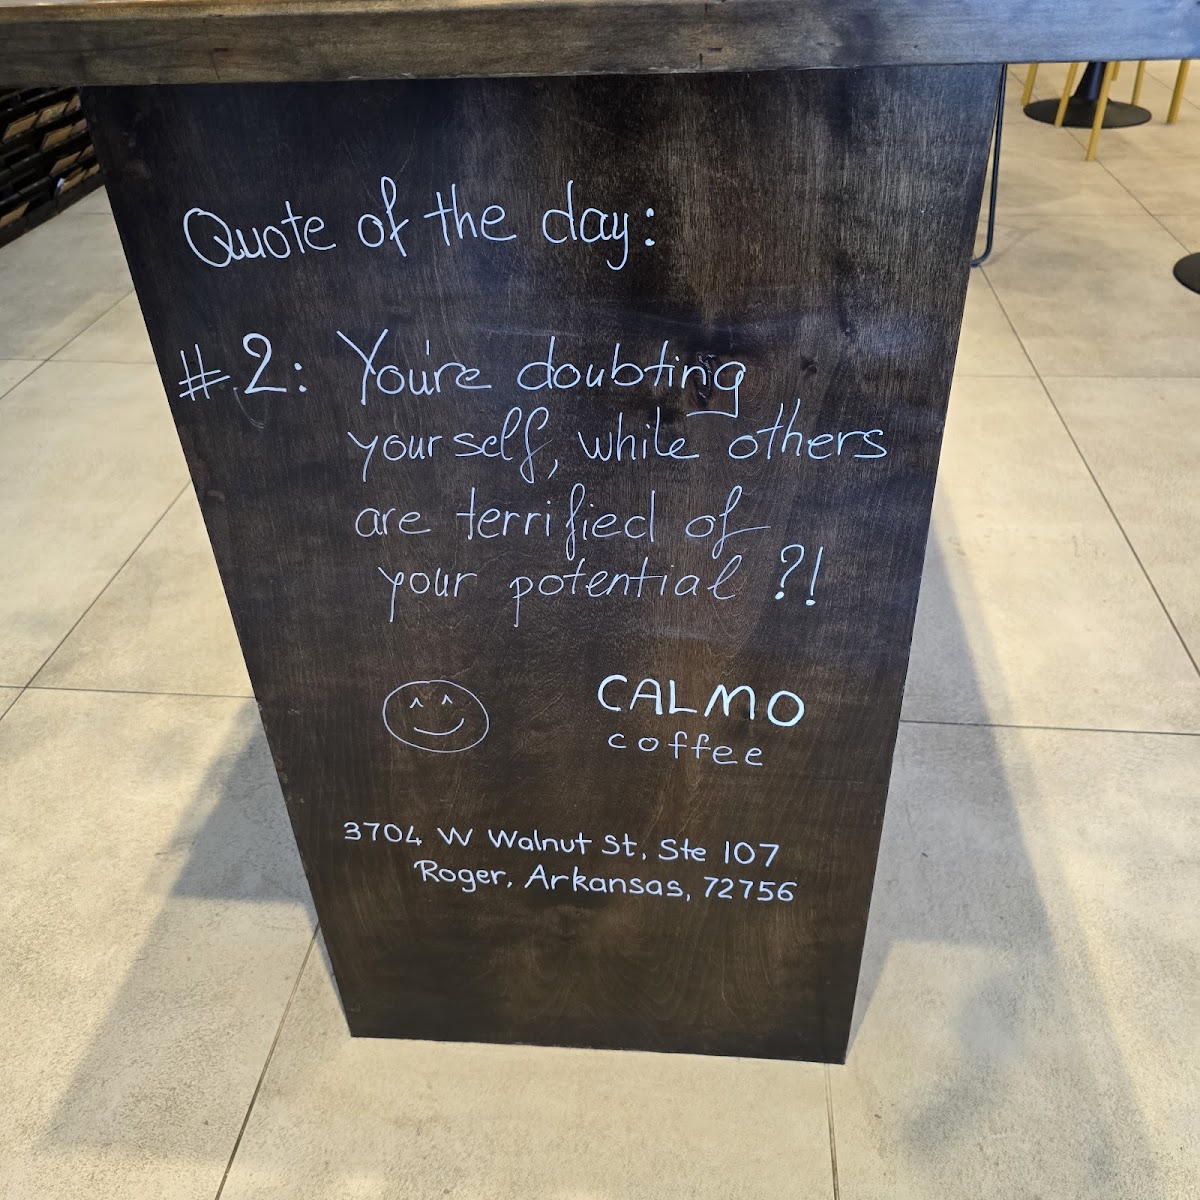 Quote of the day:
#2: You're doubting
yourself, while others
are terrified of
your potential ?!
CALMO
coffee
3704 W Walnut St, Ste 107
Roger, Arkansas, 72756